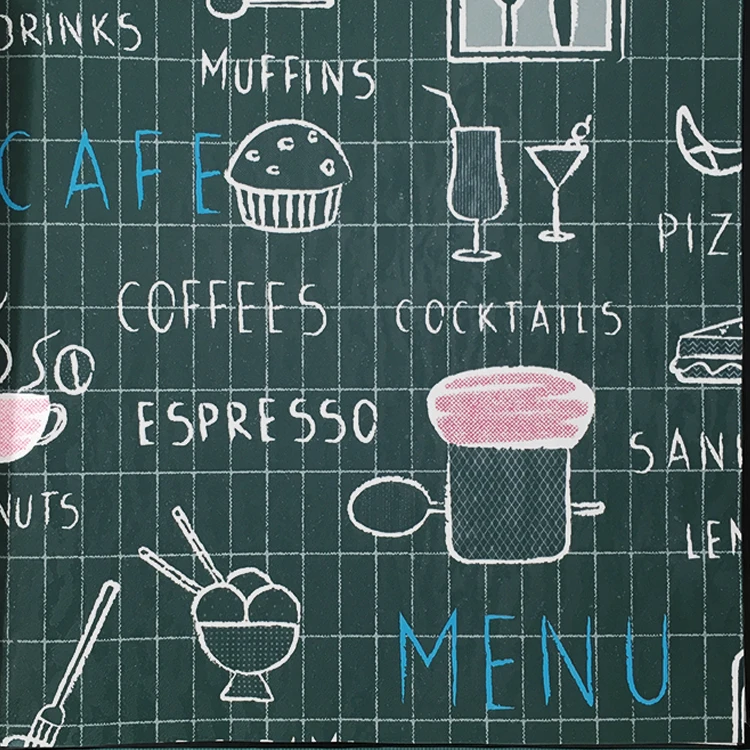 DRINKS
MUFFINS
CAFE
PIZ
COFFEES
COCKTAILS
ESPRESSO
SAN
NUTS
LEM
MENU